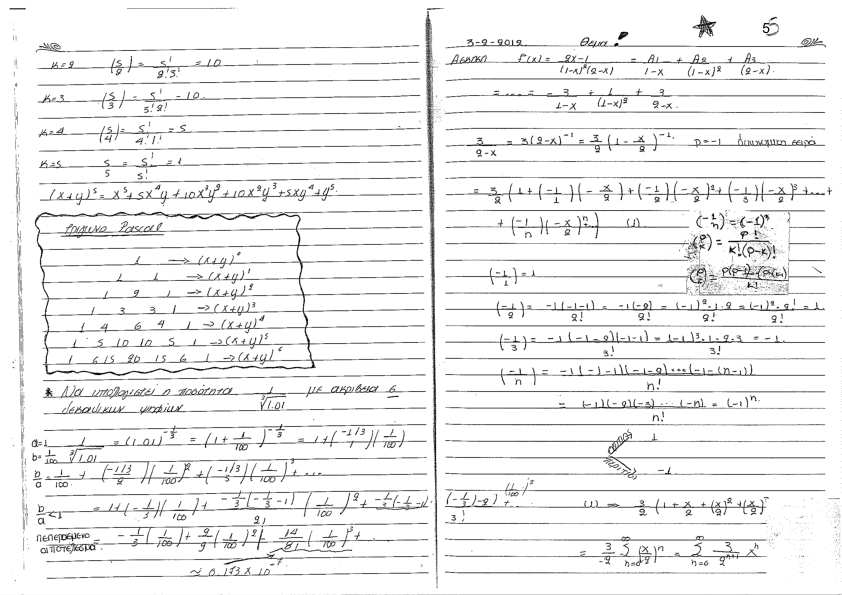 κ=2 (5/2) = 5!/2!3! = 10
κ=3 (5/3) = 5!/3!2! = 10.
κ=4 (5/4) = 5!/4!1! = 5
κ=5 5/5 = 5!/5! = 1
(x+y)^5 = x^5+5x^4y+10x^3y^2+10x^2y^3+5xy^4+y^5.
τρίγωνο Pascal
1 → (x+y)^0
1 1 → (x+y)^1
1 2 1 → (x+y)^2
1 3 3 1 → (x+y)^3
1 4 6 4 1 → (x+y)^4
1 5 10 10 5 1 → (x+y)^5
1 6 15 20 15 6 1 → (x+y)^6
* Να υπολογιστεί η ποσότητα 1/∛1.01 με ακρίβεια 6
δεκαδικών ψηφίων
a=1 1/∛1.01 = (1.01)^-1/3 = (1+1/100)^-1/3 = 1+(-1/3/1)(1/100)
b=1/100
b/a=1/100. + (-1/3/2)(1/100)^2+(-1/3/3)(1/100)^3+...
b/a<1 = 1+(-1/3)(1/100)+ -1/3(-1/3-1)/2! (1/100)^2+ -1/3(-1/3-1)
πεπερασμένο αποτέλεσμα. = -1/3(1/100)+2/9(1/100)^2 - 14/81(1/100)^3+
≈ 0.173 x 10^-7
55
3-2-2012. Θέμα!
Άσκηση f(x) = 2x-1/(1-x)^2(2-x) = A1/1-x + A2/(1-x)^2 + A3/(2-x).
= .... = 3/1-x + 1/(1-x)^2 + 3/2-x.
3/2-x = 3(2-x)^-1 = 3/2(1-x/2)^-1. p=-1 διωνυμική σειρά
= 3/2(1+(-1/1)(-x/2)+(-1/2)(-x/2)^2+(-1/3)(-x/2)^3+....+
+(-1/n)(-x/2)^n+...) (1) (-1/n)=(-1)^n
(p/k) = p!/k!(p-k)!
(-1/1)=1
(-1/2) = -1(-1-1)/2! = -1(-2)/2! = (-1)^2·1·2/2! = (-1)^2·2!/2! = 1.
(-1/3) = -1(-1-2)(-1-1)/3! = (-1)^3·1·2·3/3! = -1.
(-1/n) = -1(-1-1)(-1-2)...(-1-(n-1))/n!
= (-1)(-2)(-3)...(-n)/n! = (-1)^n.
1
-1.
(-1/3)-2)/3! (1/100)^3 + ... (1) ⇒ 3/2(1+x/2+(x/2)^2+(x/2)^3
= 3/2 ∞Σn=0 (x/2)^n = ∞Σn=0 3/2^n+1 x^n